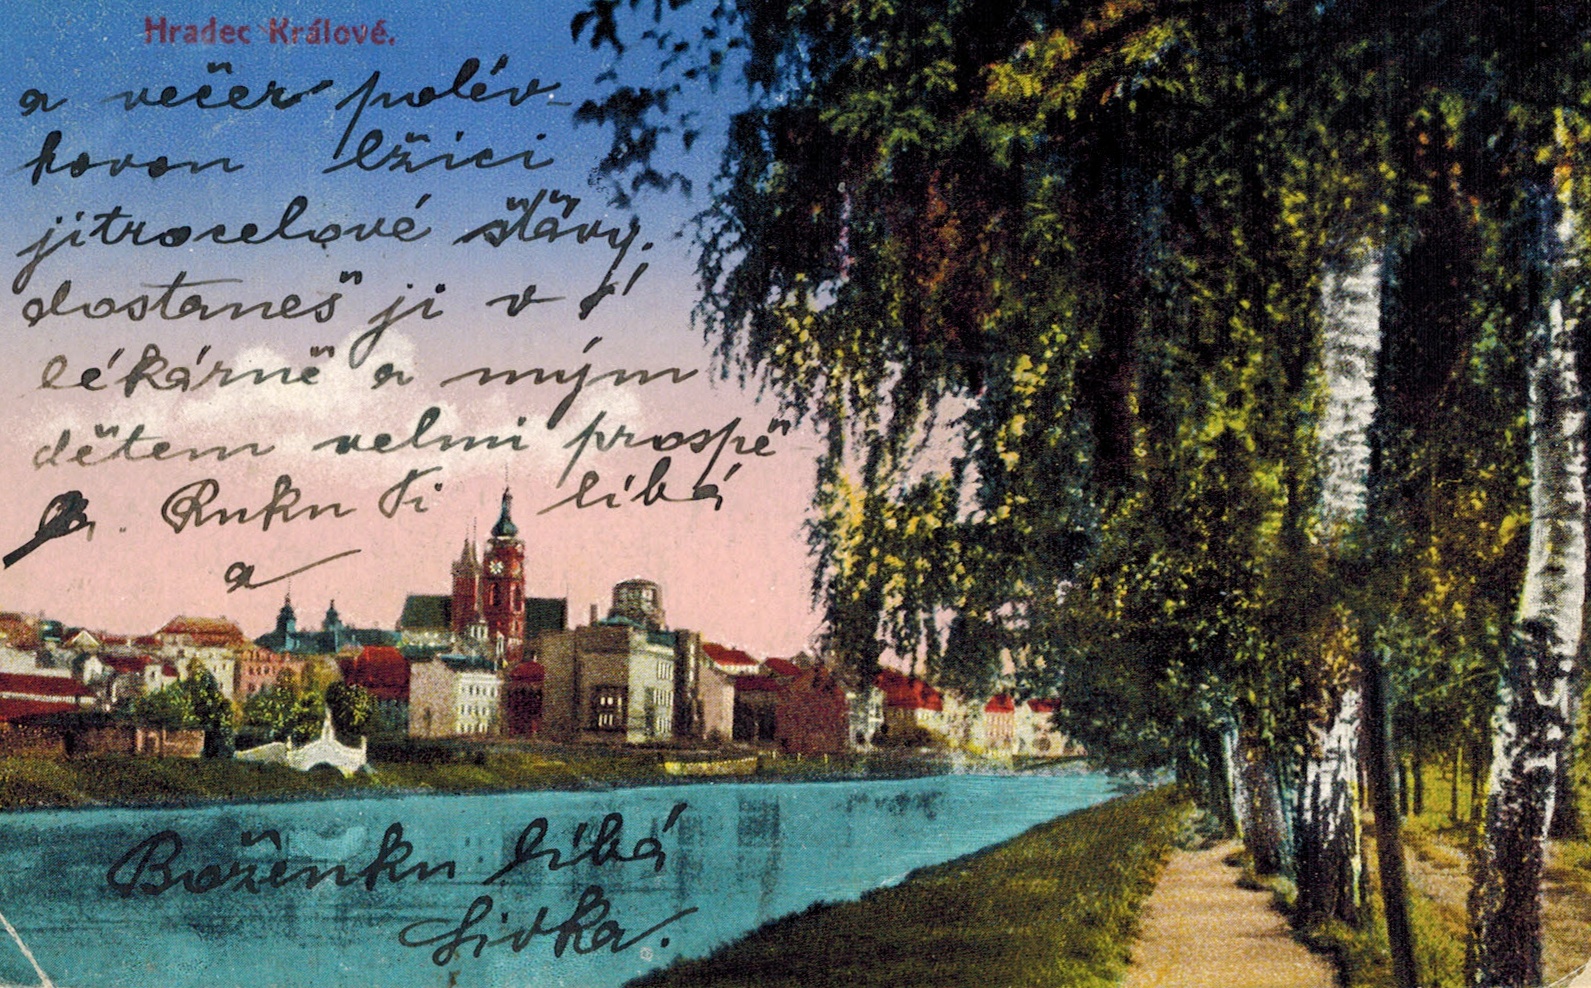 Hradec Králové.
a večer polév-
kovou lžíci
jitrocelové šťávy.
dostaneš ji v
lékárně a mým
dětem velmi prospě
la. Ruku Ti líbá
a
Boženku líbá
Livka.